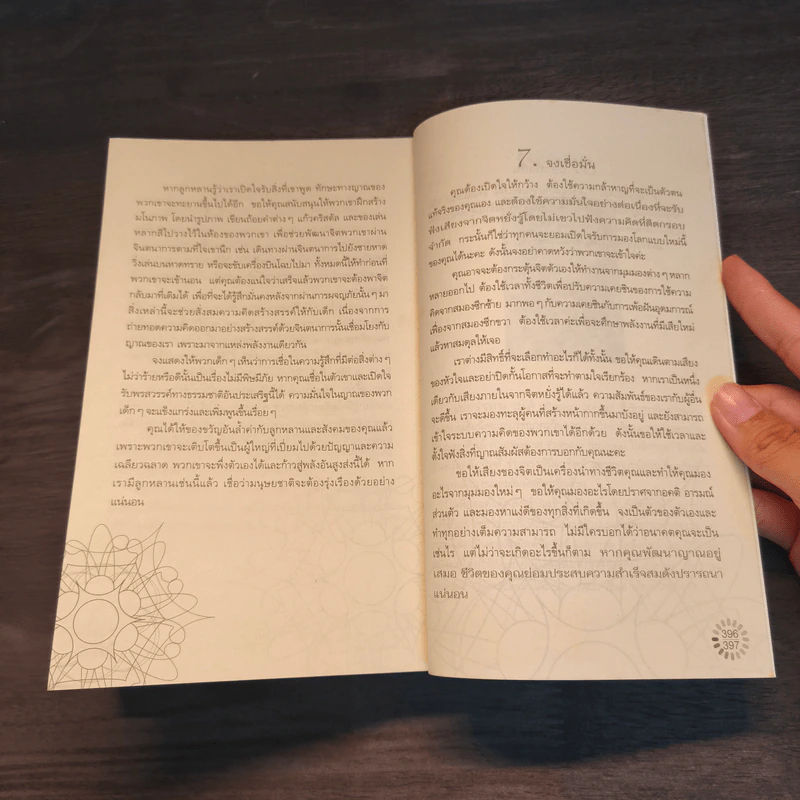 หากลูกหลานรู้ว่าเราเปิดใจรับสิ่งที่เขาพูด ทักษะทางญาณของ
พวกเขาจะทะยานขึ้นไปได้อีก ขอให้คุณสนับสนุนให้พวกเขาฝึกสร้าง
มโนภาพ โดยนำรูปภาพ เขียนถ้อยคำต่างๆ แก้วคริสตัล และของเล่น
หลากสีไปวางไว้ในห้องของพวกเขา เพื่อช่วยพัฒนาจิตพวกเขาผ่าน
จินตนาการตามที่ใจเขานึก เช่น เดินทางผ่านจินตนาการไปยังชายหาด
วิ่งเล่นบนหาดทราย หรือจะขับเครื่องบินโฉบไปมา ทั้งหมดนี้ให้ทำก่อนที่
พวกเขาจะเข้านอน แต่คุณต้องแน่ใจว่าเสร็จแล้วพวกเขาจะต้องพาจิต
กลับมาที่เดิมได้ เพื่อที่จะได้รู้สึกมั่นคงหลังจากผ่านการผจญภัยนั้นๆ มา
สิ่งเหล่านี้จะช่วยสั่งสมความคิดสร้างสรรค์ให้กับเด็ก เนื่องจากการ
ถ่ายทอดความคิดออกมาอย่างสร้างสรรค์ด้วยจินตนาการนั้นเชื่อมโยงกับ
ญาณของเรา เพราะมาจากแหล่งพลังงานเดียวกัน
จงแสดงให้พวกเด็กๆ เห็นว่าการเชื่อในความรู้สึกที่มีต่อสิ่งต่างๆ
ไม่ว่าร้ายหรือดีนั้นเป็นเรื่องไม่มีพิษมีภัย หากคุณเชื่อในตัวเขาและเปิดใจ
รับพรสวรรค์ทางธรรมชาติอันประเสริฐนี้ได้ ความมั่นใจในญาณของพวก
เด็กๆ จะแข็งแกร่งและเพิ่มพูนขึ้นเรื่อยๆ
คุณได้ให้ของขวัญอันล้ำค่ากับลูกหลานและสังคมของคุณแล้ว
เพราะพวกเขาจะเติบโตขึ้นเป็นผู้ใหญ่ที่เปี่ยมไปด้วยปัญญาและความ
เฉลียวฉลาด พวกเขาจะพึ่งตัวเองได้และก้าวสู่พลังอันสูงส่งนี้ได้ หาก
เรามีลูกหลานเช่นนี้แล้ว เชื่อว่ามนุษยชาติจะต้องรุ่งเรืองด้วยอย่าง
แน่นอน
7. จงเชื่อมั่น
คุณต้องเปิดใจให้กว้าง ต้องใช้ความกล้าหาญที่จะเป็นตัวตน
แท้จริงของคุณเอง และต้องใช้ความมั่นใจอย่างต่อเนื่องที่จะรับ
ฟังเสียงจากจิตหยั่งรู้โดยไม่เขวไปฟังความคิดที่ติดกรอบ
จำกัด กระนั้นก็ใช่ว่าทุกคนจะยอมเปิดใจรับการมองโลกแบบใหม่นี้
ของคุณได้นะคะ ดังนั้นจงอย่าคาดหวังว่าพวกเขาจะเข้าใจค่ะ
คุณอาจจะต้องกระตุ้นจิตตัวเองให้ทำงานจากมุมมองต่างๆ หลาก
หลายออกไป ต้องใช้เวลาทั้งชีวิตเพื่อปรับความเคยชินของการใช้ความ
คิดจากสมองซีกซ้าย มากพอๆ กับความเคยชินกับการเพ้อฝันอุดมการณ์
เฟื่องจากสมองซีกขวา ต้องใช้เวลาค่ะเพื่อจะศึกษาพลังงานที่มีเสียใหม่
แล้วหาสมดุลให้เจอ
เราต่างมีสิทธิ์ที่จะเลือกทำอะไรก็ได้ทั้งนั้น ขอให้คุณเดินตามเสียง
ของหัวใจและอย่าปิดกั้นโอกาสที่จะทำตามใจเรียกร้อง หากเราเป็นหนึ่ง
เดียวกับเสียงภายในจากจิตหยั่งรู้ได้แล้ว ความสัมพันธ์ของเรากับผู้อื่น
จะดีขึ้น เราจะมองทะลุผู้คนที่สร้างหน้ากากขึ้นมาบังอยู่ และยังสามารถ
เข้าใจระบบความคิดของพวกเขาได้อีกด้วย ดังนั้นขอให้ใช้เวลาและ
ตั้งใจฟังสิ่งที่ญาณสัมผัสต้องการบอกกับคุณนะคะ
ขอให้เสียงของจิตเป็นเครื่องนำทางชีวิตคุณและทำให้คุณมอง
อะไรจากมุมมองใหม่ๆ ขอให้คุณมองอะไรโดยปราศจากอคติ อารมณ์
ส่วนตัว และมองหาแง่ดีของทุกสิ่งที่เกิดขึ้น จงเป็นตัวของตัวเองและ
ทำทุกอย่างเต็มความสามารถ ไม่มีใครบอกได้ว่าอนาคตคุณจะเป็น
เช่นไร แต่ไม่ว่าจะเกิดอะไรขึ้นก็ตาม หากคุณพัฒนาญาณอยู่
เสมอ ชีวิตของคุณย่อมประสบความสำเร็จสมดังปรารถนา
แน่นอน
396
397